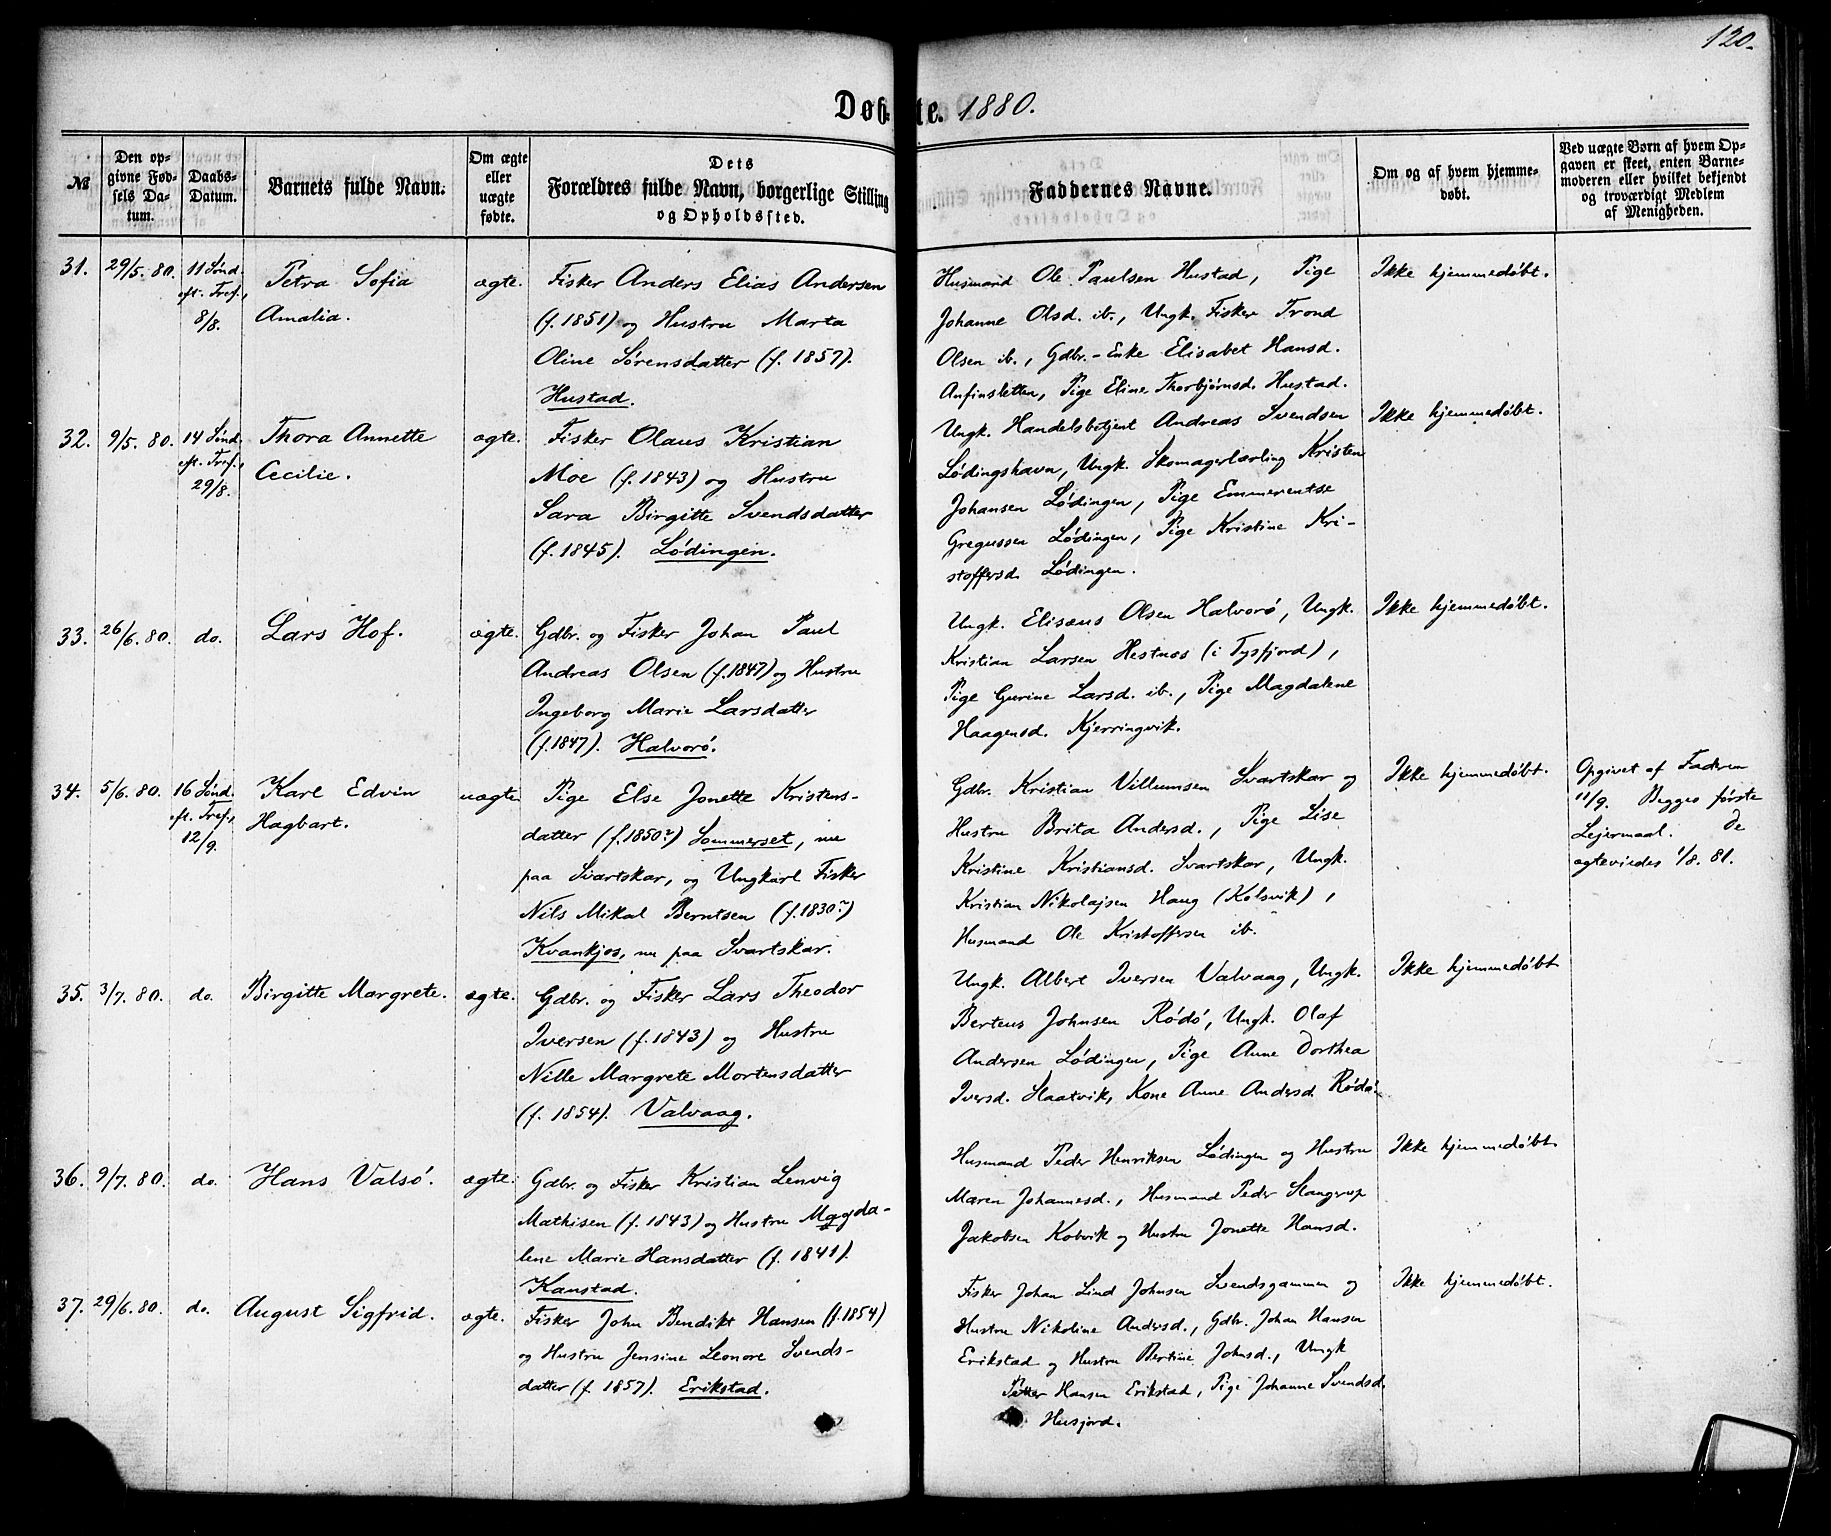 120.
Døbte. 1880.
№
Den opgivne Fødsels Datum.
Daabs-Datum.
Barnets fulde Navn.
Om ægte eller uægte fødte.
Dets Forældres fulde Navn, borgerlige Stilling og Opholdssted.
Faddernes Navne.
Om og af hvem hjemmedøbt.
Ved uægte Børn af hvem Opgaven er skeet, enten Barnemoderen eller hvilket bekjendt og troværdigt Medlem af Menigheden.
31. 29/5. 80.
11 Sønd.
eft. Tref.,
8/8.
Petra Sofia
Amalia.
ægte.
Fisker Anders Elias Andersen
(f. 1851) og Hustru Marta
Oline Sørensdatter (f. 1857).
Hustad.
Husmand Ole Paulsen Hustad, Pige
Johanne Olsd. ib., Ungk. Fisker Trond
Olsen ib., Gdbr.-Enke Elisabet Hansd.
Anfinsletten, Pige Eline Thorbjørnsd. Hustad.
Ikke hjemmedøbt.
32. 9/5. 80.
14 Sønd.
eft. Tref.,
29/8.
Thora Annette
Cecilie.
ægte.
Fisker Olaus Kristian
Moe (f. 1843) og Hustru
Sara Birgitte Svendsdatter
(f. 1845). Lødingen.
Ungk. Handelsbetjent Andreas Svendsen
Lødingshavn, Ungk. Skomagerlærling Kristen
Johansen Lødingen, Pige Emmerentse
Gregussen Lødingen, Pige Kristine Kri-
stoffersd. Lødingen.
Ikke hjemmedøbt.
33. 26/6. 80.
do.
Lars Hof.
ægte.
Gdbr. og Fisker Johan Paul
Andreas Olsen (f. 1847) og Hustru
Ingeborg Marie Larsdatter
(f. 1847). Halvorø.
Ungk. Elisæus Olsen Halvorø, Ungk.
Kristian Larsen Hestnes (i Tysfjord),
Pige Gurine Larsd. ib., Pige Magdalene
Haagensd. Kjerringvik.
Ikke hjemmedøbt.
34. 5/6. 80.
16 Sønd.
eft. Tref.,
12/9.
Karl Edvin
Hagbart.
uægte
Pige Else Jonette Kristens-
datter (f. 1850?) Sommerset, nu
paa Svartskar, og Ungkarl Fisker
Nils Mikal Berntsen (f. 1830?)
Kvankjos, nu paa Svartskar.
Gdbr. Kristian Villumsen Svartskar og
Hustru Brita Andersd., Pige Lise
Kristine Kristiansd. Svartskar, Ungk.
Kristian Nikolajsen Haug (Kolsvik),
Husmand Ole Kristoffersen ib.
Ikke hjemmedøbt.
Opgivet af Faderen
11/9. Begges første
Lejermaal. De
ægteviedes 1/8. 81.
35. 3/7. 80.
do.
Birgitte Margrete.
ægte.
Gdbr. og Fisker Lars Theodor
Iversen (f. 1843) og Hustru
Nille Margrete Mortensdatter
(f. 1854). Valvaag.
Ungk. Albert Iversen Valvaag, Ungk.
Berteus Johnsen Rødø, Ungk. Olaf
Andersen Lødingen, Pige Anne Dorthea
Iversd. Slaatvik, Kone Anne Andersd. Rødø.
Ikke hjemmedøbt
36. 9/7. 80.
do.
Hans Valsø.
ægte.
Gdbr. og Fisker Kristian Lenvig
Mathisen (f. 1843) og Hustru Magda-
lene Marie Hansdatter (f. 1841).
Kanstad.
Husmand Peder Henriksen Lødingen og Hustru
Maren Johannesd., Husmand Peder Slangrup
Jakobsen Kobvik og Hustru Jonette Hansd.
Ikke hjemmedøbt.
37. 29/6. 80.
do.
August Sigfrid.
ægte.
Fisker John Bendikt Hansen (f. 1854)
og Hustru Jensine Leonore Svends-
datter (f. 1857). Erikstad.
Fisker Johan Lind Johnsen Svendsgammen og
Hustru Nikoline Andersd., Gdbr. Johan Hansen
Erikstad og Hustru Bertine Johnsd., Ungk
Petter Hansen Erikstad, Pige Johanne Svendsd.
Husjord.
Ikke hjemmedøbt.